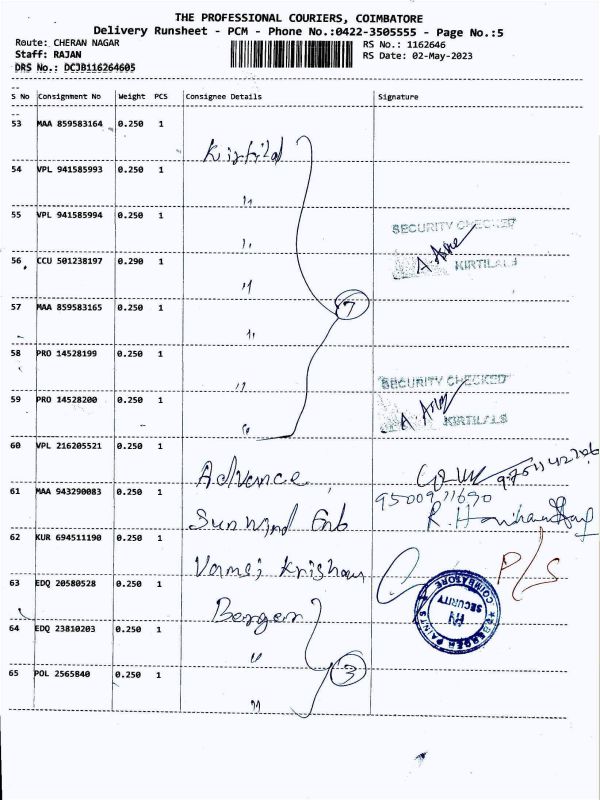 THE PROFESSIONAL COURIERS, COIMBATORE
Delivery Runsheet - PCM - Phone No.:0422-3505555 - Page No.:5
Route: CHERAN NAGAR RS No.: 1162646
Staff: RAJAN RS Date: 02-May-2023
DRS No.: DCJB116264605
S No Consignment No Weight PCS Consignee Details Signature
53 MAA 859583164 0.250 1
Kirtilal
54 VPL 941585993 0.250 1
"
55 VPL 941585994 0.250 1
SECURITY CHECKED
"
56 CCU 501238197 0.290 1
KIRTILALS
"
57 MAA 859583165 0.250 1
7
"
58 PRO 14528199 0.250 1
"
SECURITY CHECKED
59 PRO 14528200 0.250 1
KIRTILALS
"
60 VPL 216205521 0.250 1
Advance
61 MAA 943290083 0.250 1
Sunwind
62 KUR 694511190 0.250 1
Vamsi Krishna
P/S
63 EDQ 20580528 0.250 1
Berger
BERGER PAINTS COIMBATORE
SECURITY
64 EDQ 23810203 0.250 1
"
3
65 POL 2565840 0.250 1
"